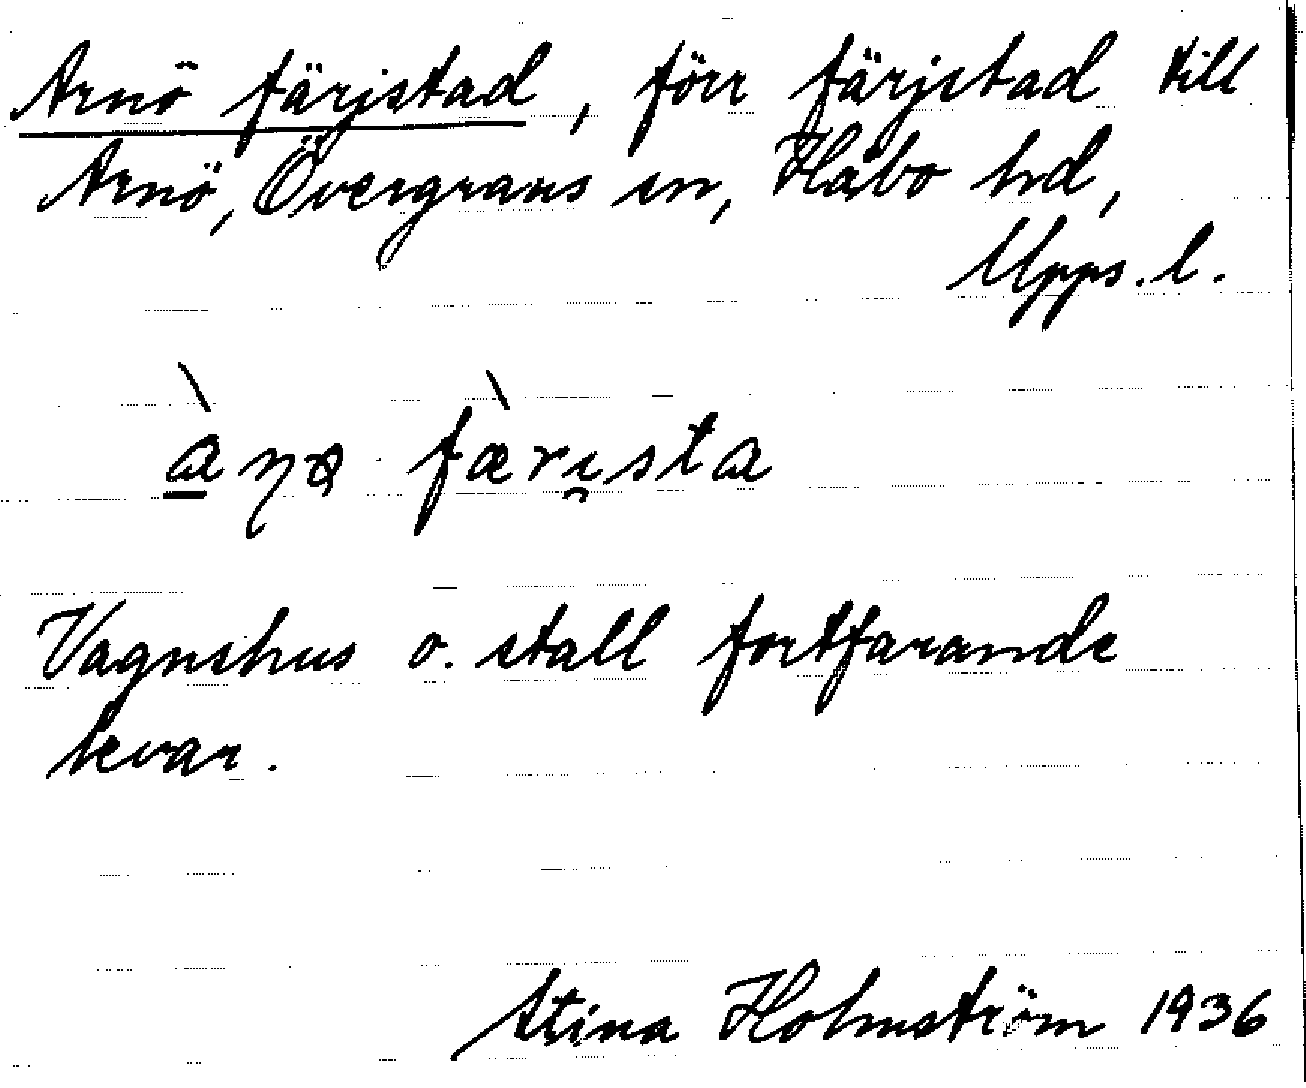 Arnö färjstad, förr färjstad till
Arnö, Övergrans sn, Håbo hd,
Upps. l.
Vagnshus o. stall fortfarande
kvar.
Stina Holmström 1936